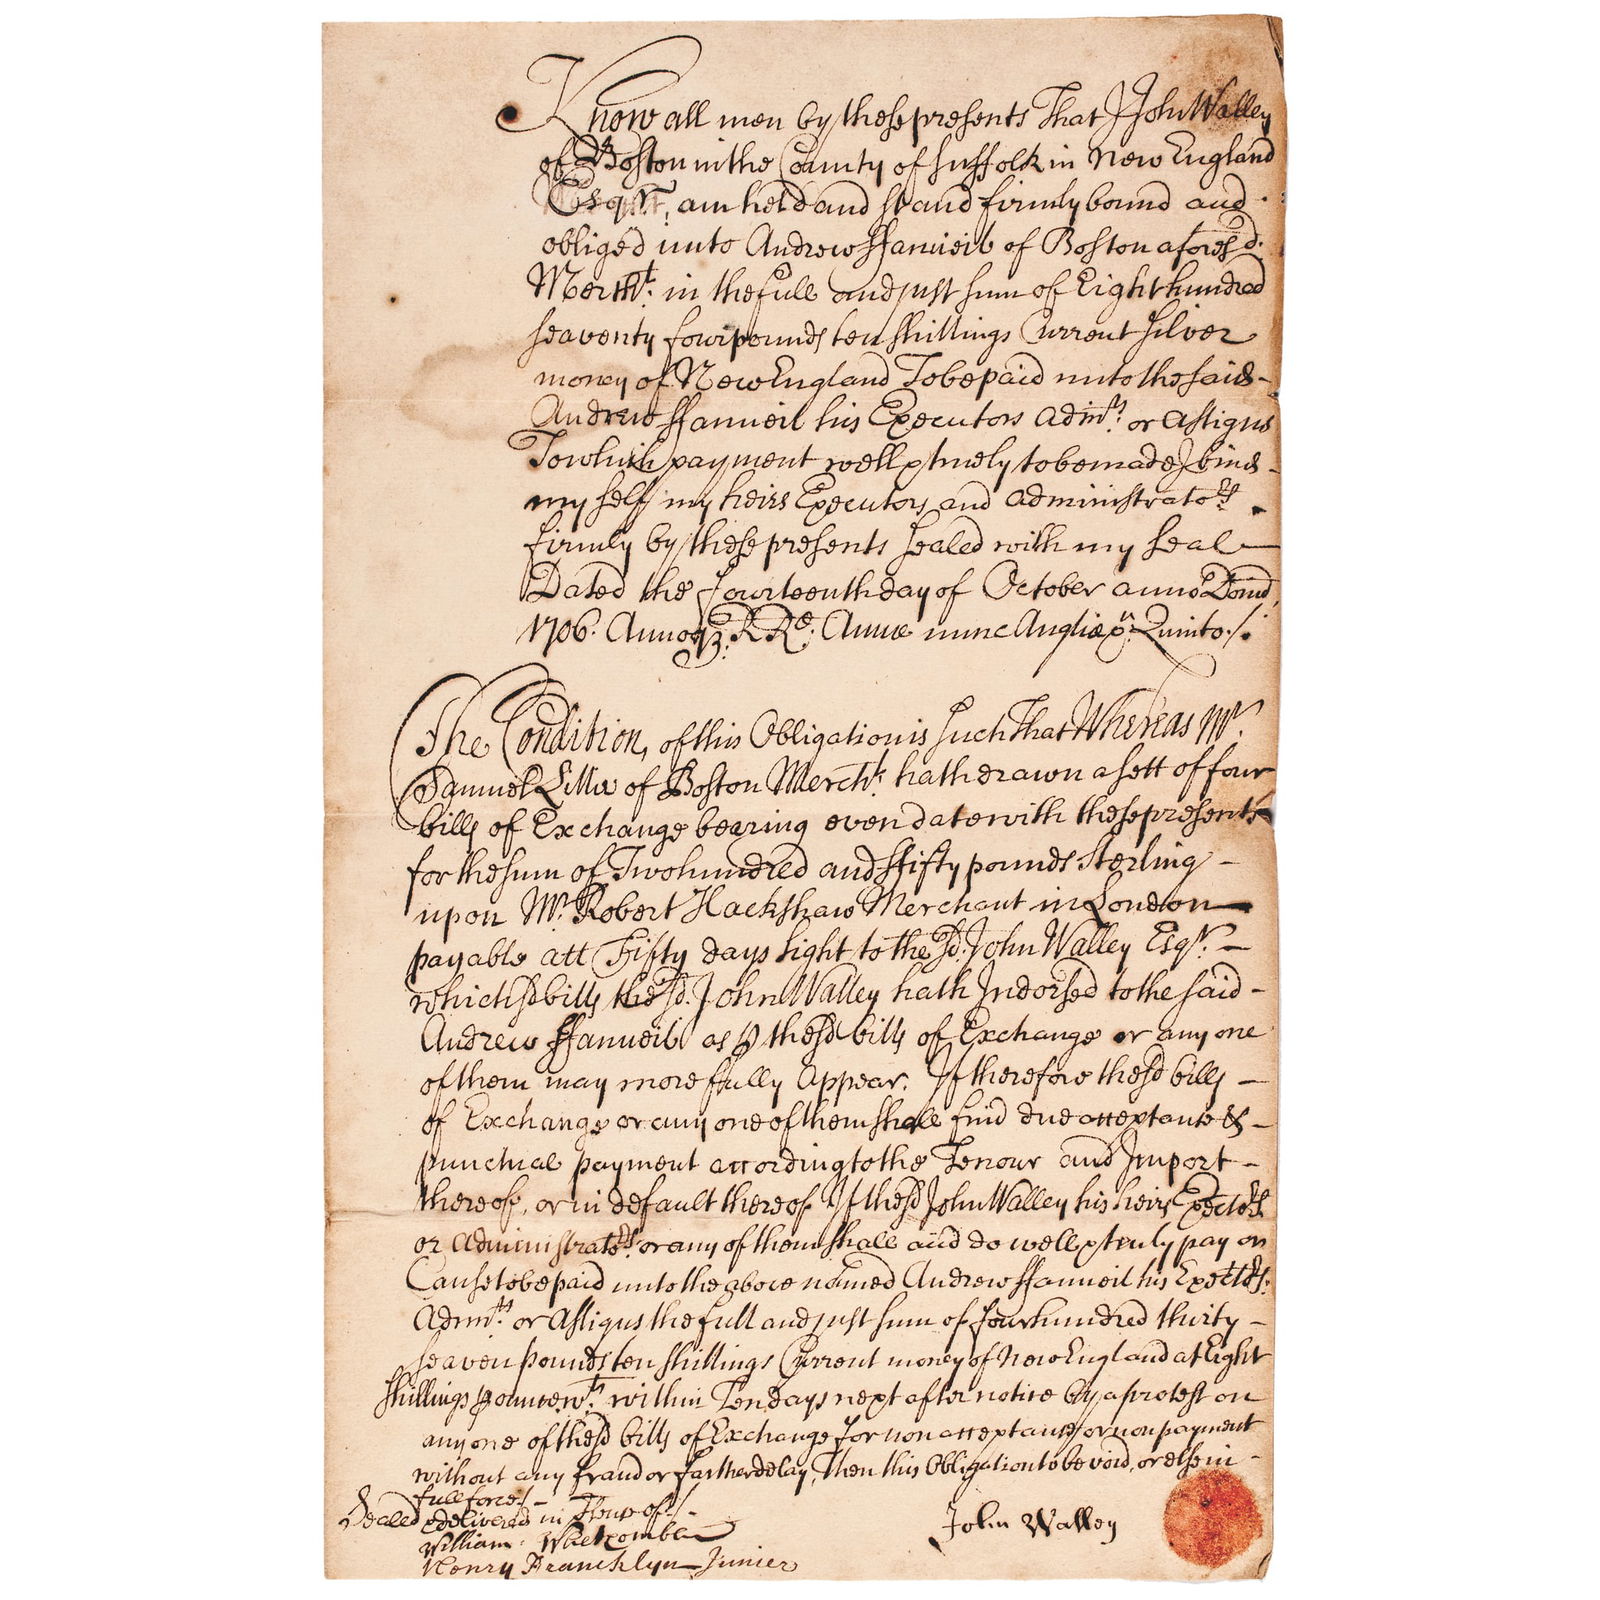 Know all men by these presents That I John Walley
of Boston in the County of Suffolk in New England
Esqr., am held and stand firmly bound and
obliged unto Andrew ffanueil of Boston aforesd.
Mercht. in the full and just sum of Eight hundred
seaventy four pounds ten shillings Current silver
money of New England To be paid unto the said
Andrew ffanueil his Executors Admrs. or Assigns
To which payment well & truely to be made I bind
my self my heirs Executors and administrators.
firmly by these presents sealed with my seal
Dated the fourteenth day of October anno Domi
1706. Annoq; RRe. Annæ nunc Angliæ &c. Quinto./.
The Condition, of this Obligation is such That Whereas Mr.
Samuel Lilla of Boston Mercht. hath drawn a sett of four
bills of Exchange bearing even date with these presents
for the sum of Two hundred and ffifty pounds Sterling
upon Mr. Robert Hackshaw Merchant in London
payable att Fifty days sight to the sd. John Walley Esqr.
which sd bills the sd. John Walley hath Indorsed to the said
Andrew ffanueil as p the sd bills of Exchange or any one
of them may more fully Appear. If therefore the sd bills
of Exchange or any one of them shall find due acceptance &
punctual payment according to the Tenour and Import
thereof, or in default thereof If the sd John Walley his heirs Exectors
or Administrators or any of them shall and do well & truly pay or
Cause to be paid unto the above named Andrew ffanueil his Exectors.
Admrs. or Assigns the full and just sum of four hundred thirty
seaven pounds ten shillings Current money of New England at Eight
shillings p ounce wt. within Ten days next after notice by a protest on
any one of the sd bills of Exchange for non acceptance or non payment
without any fraud or farther delay, Then this Obligation to be void, or else in
full force/
Sealed & delivered in
William Whetcombe
Henry Francklyn Junier
John Walley